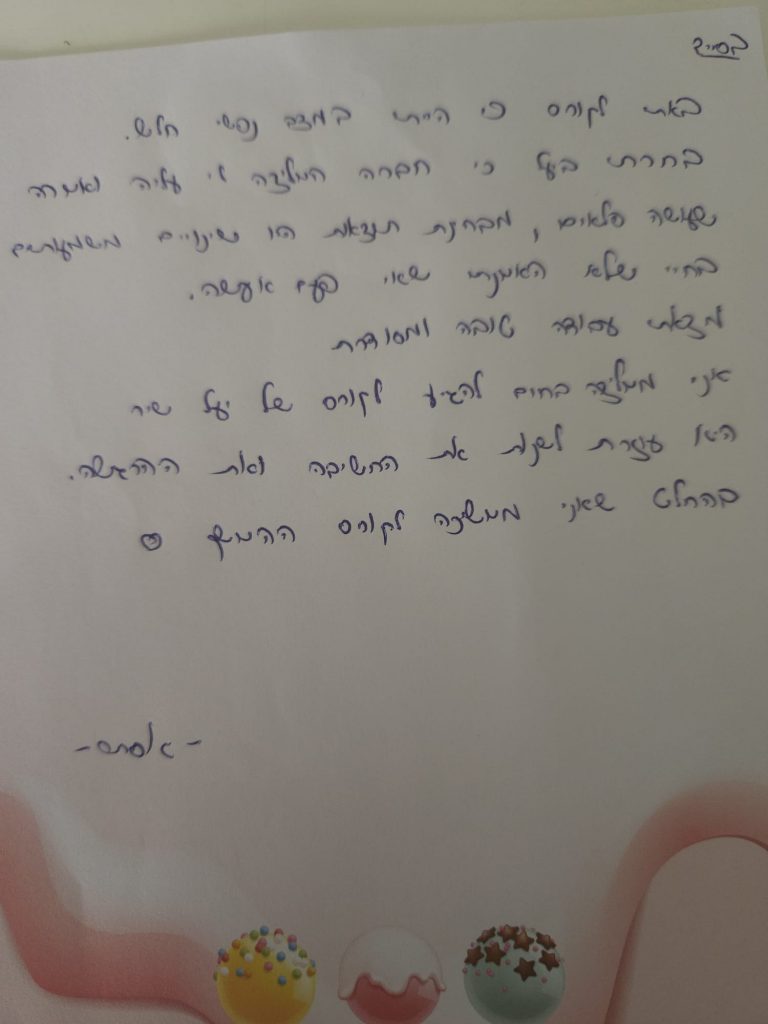 בס״ד
באתי לקורס כי הייתי במצב נפשי חלש.
בחרתי ביעל כי חברה המליצה לי עליה ואמרה
שעושה פלאים, מבחינת תוצאות היו שינויים משמעותיים
בחיי שלא האמנתי שאי פעם אעשה.
מצאתי עבודה טובה ומסודרת
אני ממליצה בחום להגיע לקורס של יעל שיר
היא עוזרת לשנות את החשיבה ואת ההרגשה.
בהחלט שאני ממשיכה לקורס ההמשך